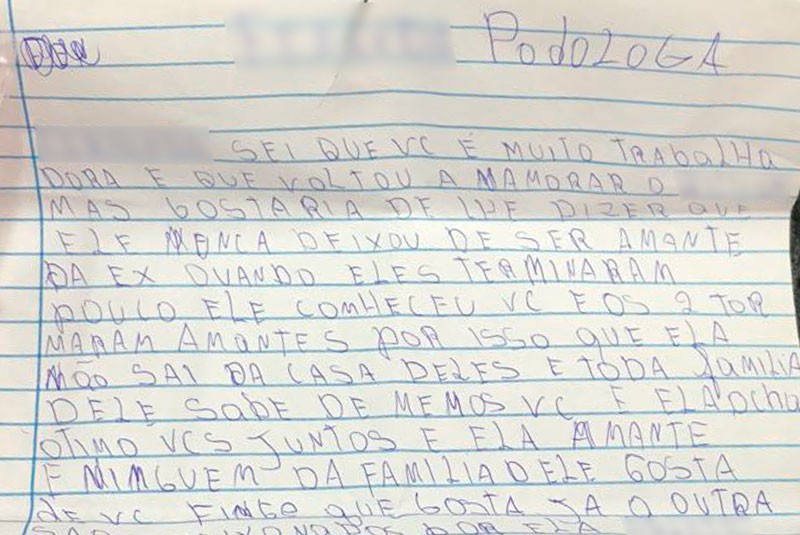 PodoLOGA
SEI QUE VC É MUITO TRAbALHA
DORA E QUE VOLTOU A MAMORAR O
MAS GOSTARIA DE LHE DIZER QUE
ELE NUNCA DEIXOU DE SER AMANTE
DA EX QUANDO ELES TERMINARAM
POUCO ELE COMHECEU VC E OS 2 TOR
MARAM AMANTES POR ISSO QUE ELA
MÃO SAI DA CASA DELES E TODA fAMILIA
DELE SAbE DE MEMOS VC E ELA OchA
OTIMO VCS JUNTOS E ELA AMANTE
E NIMGUEM DA FAMILIA DELE GOSTA
dE VC FINGE QUE GOSTA JA A OUTRA
POR ELA